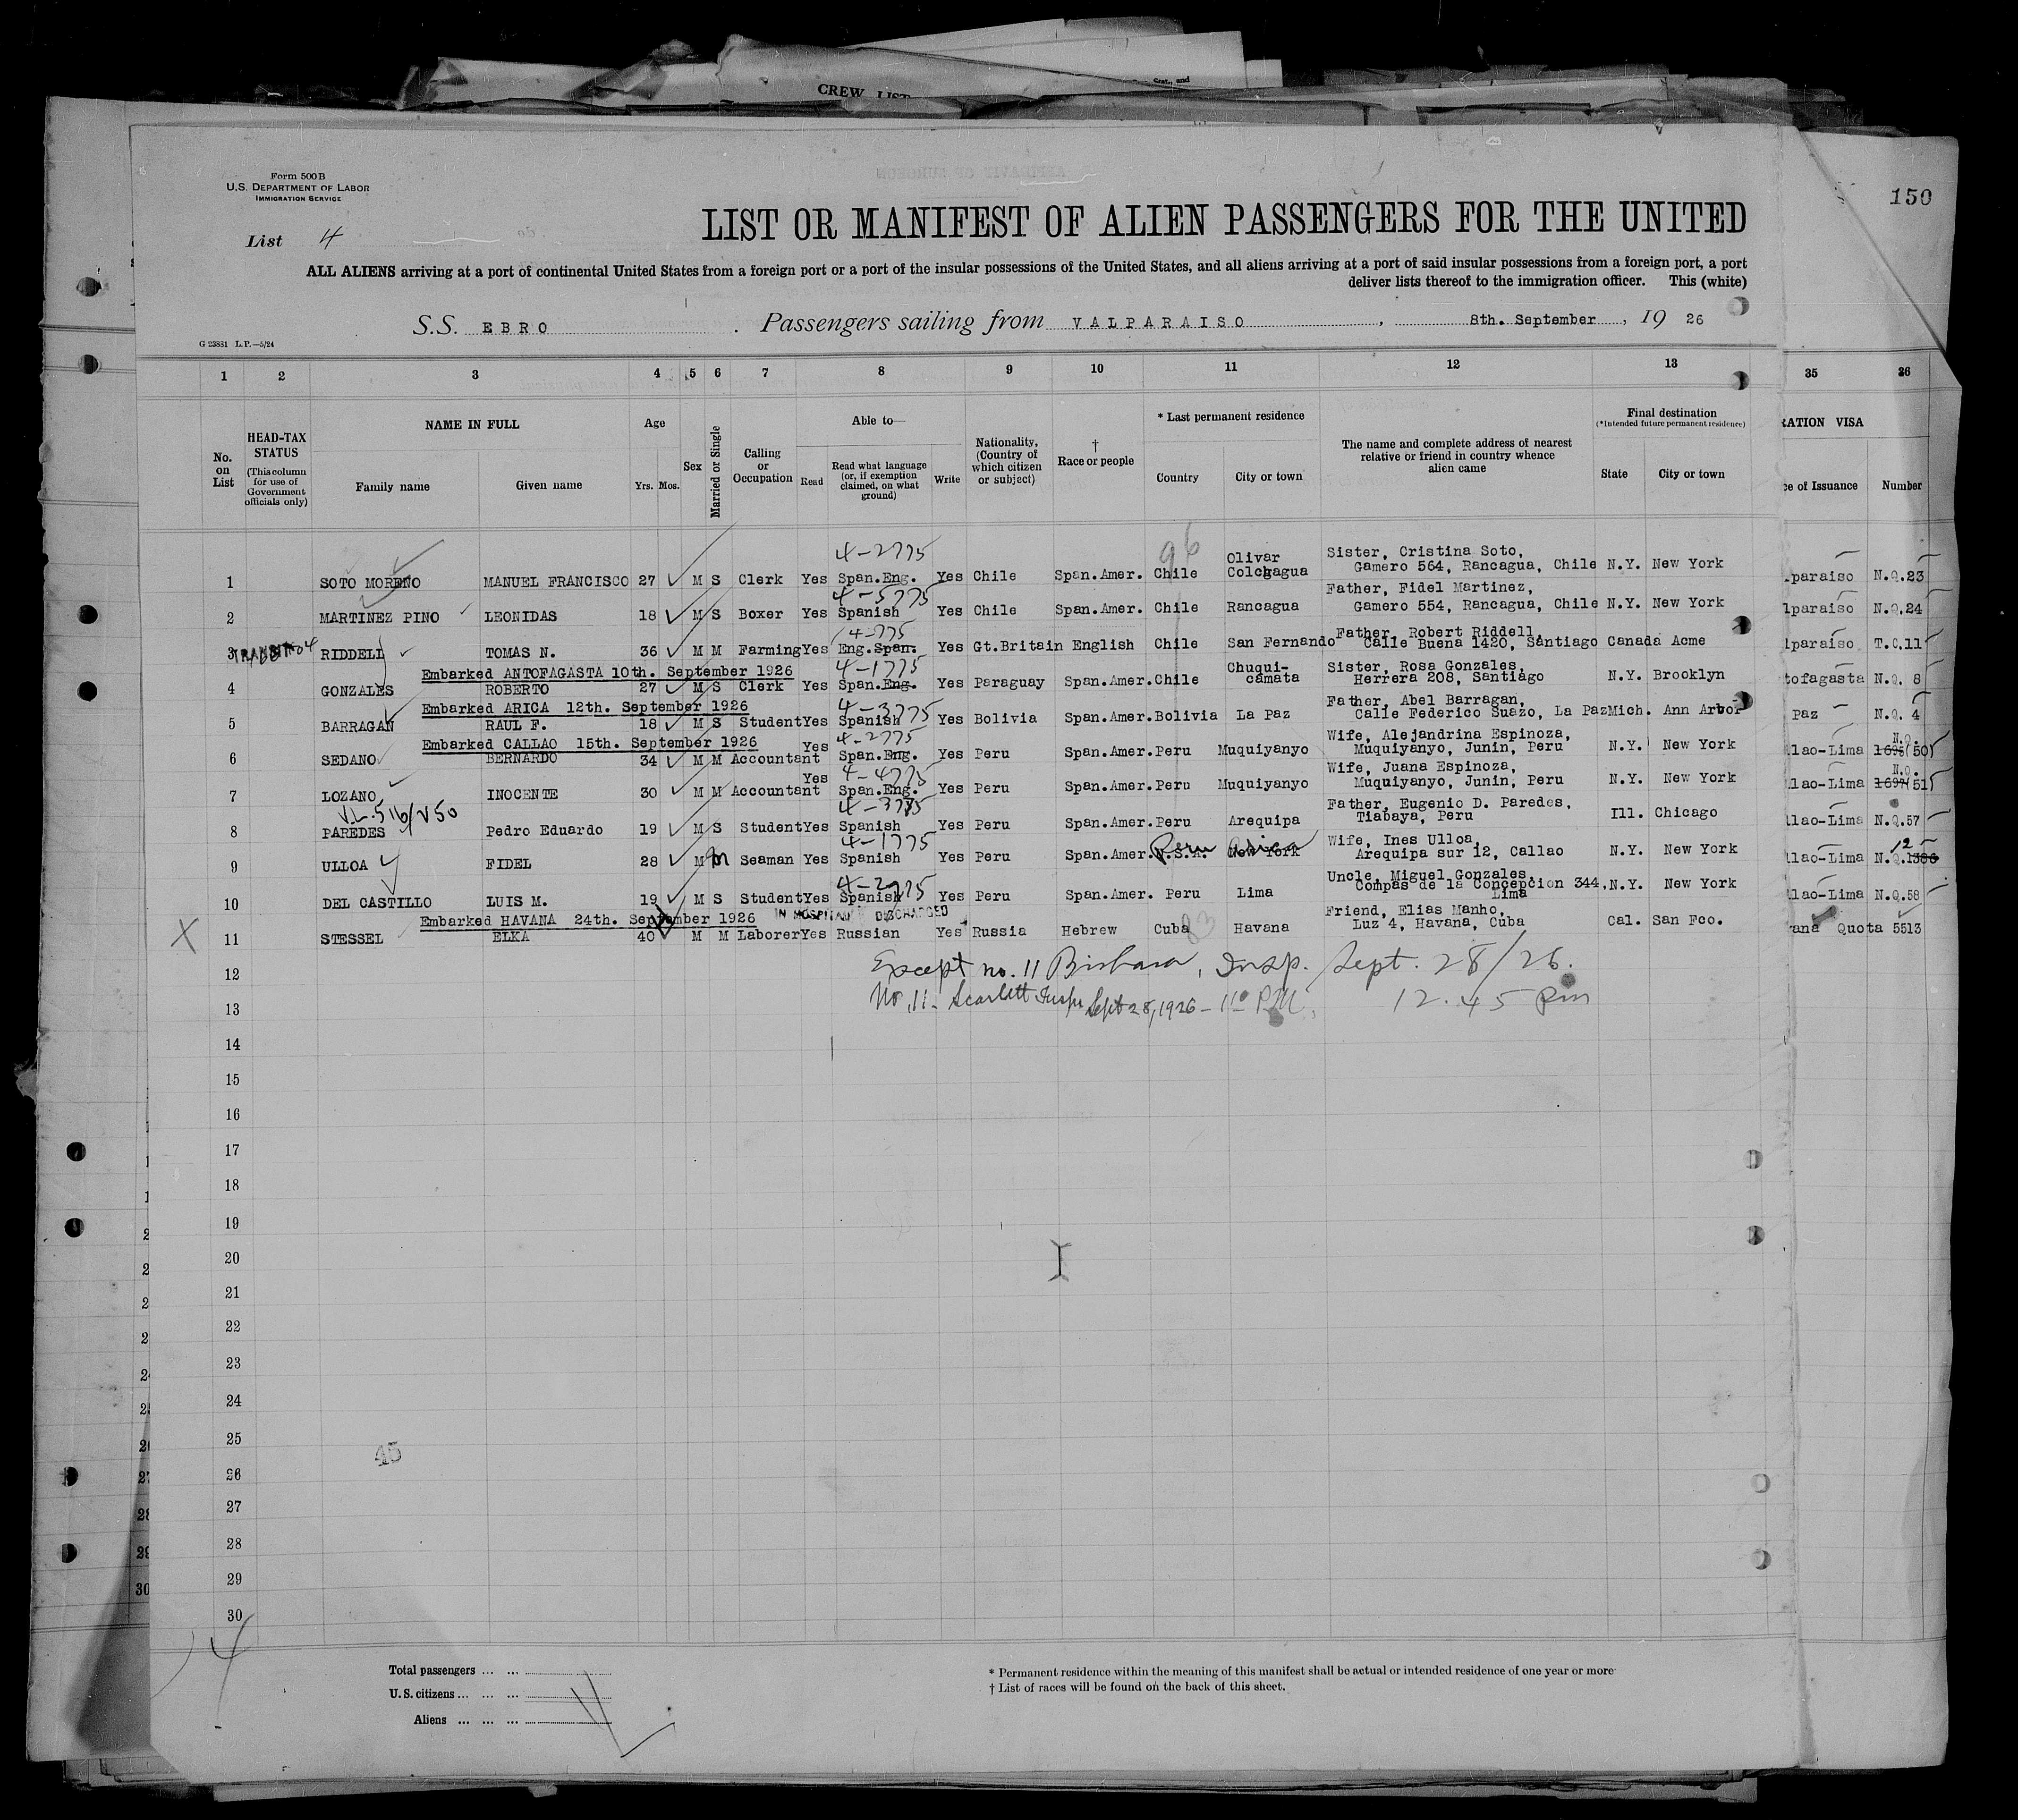 CREW LIST
150
Form 500 B
U.S. DEPARTMENT OF LABOR
IMMIGRATION SERVICE
List 4
LIST OR MANIFEST OF ALIEN PASSENGERS FOR THE UNITED
ALL ALIENS arriving at a port of continental United States from a foreign port or a port of the insular possessions of the United States, and all aliens arriving at a port of said insular possessions from a foreign port, a port
deliver lists thereof to the immigration officer. This (white)
S.S. EBRO . Passengers sailing from VALPARAISO , 8th. September , 19 26
G 23881 L.P.—5/24
1 2 3 4 5 6 7 8 9 10 11 12 13 35 36
No. on List
HEAD-TAX STATUS (This column for use of Government officials only)
NAME IN FULL
Family name Given name
Age
Yrs. Mos.
Sex
Married or Single
Calling or Occupation
Able to—
Read Read what language (or, if exemption claimed, on what ground) Write
Nationality, (Country of which citizen or subject)
† Race or people
* Last permanent residence
Country City or town
The name and complete address of nearest relative or friend in country whence alien came
Final destination
(*Intended future permanent residence)
State City or town
RATION VISA
ce of Issuance Number
4-2775 96 Olivar Sister, Cristina Soto,
1 SOTO MORENO MANUEL FRANCISCO 27 M S Clerk Yes Span.Eng. Yes Chile Span.Amer. Chile Colchagua Gamero 564, Rancagua, Chile N.Y. New York lparaiso N.Q.23
4-5775 Father, Fidel Martinez,
2 MARTINEZ PINO LEONIDAS 18 M S Boxer Yes Spanish Yes Chile Span.Amer. Chile Rancagua Gamero 554, Rancagua, Chile N.Y. New York lparaiso N.Q.24
4-775 Father, Robert Riddell,
3 RIDDELL TOMAS N. 36 M M Farming Yes Eng.Span. Yes Gt.Britain English Chile San Fernando Calle Buena 1420, Santiago Canada Acme lparaiso T.C.11
Embarked ANTOFAGASTA 10th. September 1926 4-1775 Chuqui- Sister, Rosa Gonzales,
4 GONZALES ROBERTO 27 M S Clerk Yes Span.Eng. Yes Paraguay Span.Amer. Chile camata Herrera 208, Santiago N.Y. Brooklyn tofagasta N.Q. 8
Embarked ARICA 12th. September 1926 4-3775 Father, Abel Barragan,
5 BARRAGAN RAUL F. 18 M S Student Yes Spanish Yes Bolivia Span.Amer. Bolivia La Paz Calle Federico Suazo, La Paz Mich. Ann Arbor Paz N.Q. 4
Embarked CALLAO 15th. September 1926 Yes 4-2775 Wife, Alejandrina Espinoza, N.Q.
6 SEDANO BERNARDO 34 M M Accountant Span.Eng. Yes Peru Span.Amer. Peru Muquiyanyo Muquiyanyo, Junin, Peru N.Y. New York llao-Lima 50
Yes 4-4775 Wife, Juana Espinoza, N.Q.
7 LOZANO INOCENTE 30 M M Accountant Span.Eng. Yes Peru Span.Amer. Peru Muquiyanyo Muquiyanyo, Junin, Peru N.Y. New York llao-Lima 51
V.L. 516/V50 4-3775 Father, Eugenio D. Paredes,
8 PAREDES Pedro Eduardo 19 M S Student Yes Spanish Yes Peru Span.Amer. Peru Arequipa Tiabaya, Peru Ill. Chicago llao-Lima N.Q.57
4-1775 Peru Wife, Ines Ulloa, 12
9 ULLOA FIDEL 28 M M Seaman Yes Spanish Yes Peru Span.Amer. U.S.A. New York Arequipa sur 12, Callao N.Y. New York llao-Lima N.Q.
4-2775 Uncle, Miguel Gonzales,
10 DEL CASTILLO LUIS M. 19 M S Student Yes Spanish Yes Peru Span.Amer. Peru Lima Compas de la Concepcion 344, Lima N.Y. New York llao-Lima N.Q.58
Embarked HAVANA 24th. September 1926 IN HOSPITAL DISCHARGED Friend, Elias Manho,
X 11 STESSEL ELKA 40 M M Laborer Yes Russian Yes Russia Hebrew Cuba Havana Luz 4, Havana, Cuba Cal. San Fco. vana Quota 5513
12 Except no. 11 Insp. Sept. 28/26.
13 No. 11 - Scarlett Insp Sept 28, 1926 - 11 P.M. 12.45 pm
14
15
16
17
18
19
20
21
22
23
24
25
45
26
27
28
29
30
Total passengers ... ...
U. S. citizens ... ... ...
Aliens ... ... ...
* Permanent residence within the meaning of this manifest shall be actual or intended residence of one year or more
† List of races will be found on the back of this sheet.